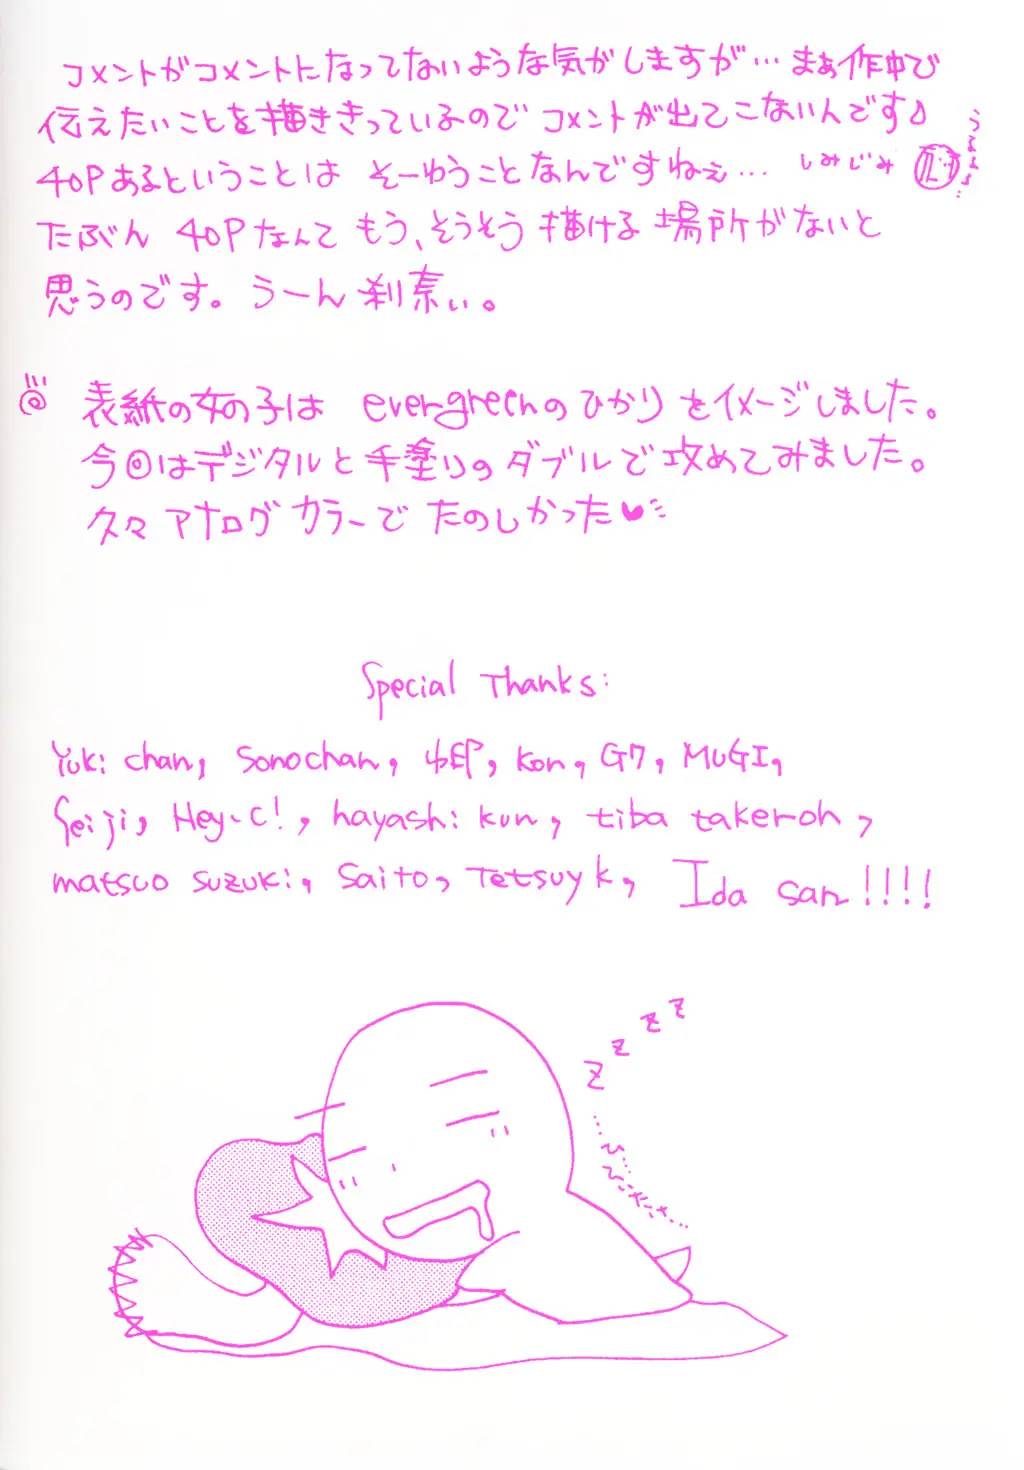 コメントがコメントになってないような気がしますが… まぁ作中で
伝えたいことを描ききっているので コメントが出てこないんです♪
40Pあるということは そーゆうことなんですねぇ… しみじみ
たぶん 40Pなんて もう、そうそう 描ける 場所がないと
思うのです。うーん 刹素い。
表紙の女の子は evergreenのひかり をイメージしました。
今回はデジタルと手塗りのダブルで攻めてみました。
久々 アナログ カラーで たのしかった♥
Special Thanks:
Yuki chan, Sonochan, Kon, G7, MUGI,
Seiji, Hey-C!, hayashi kun, tiba takeroh,
matsuo suzuki, Saito, Tetsuy k, Ida san!!!!
z z z z